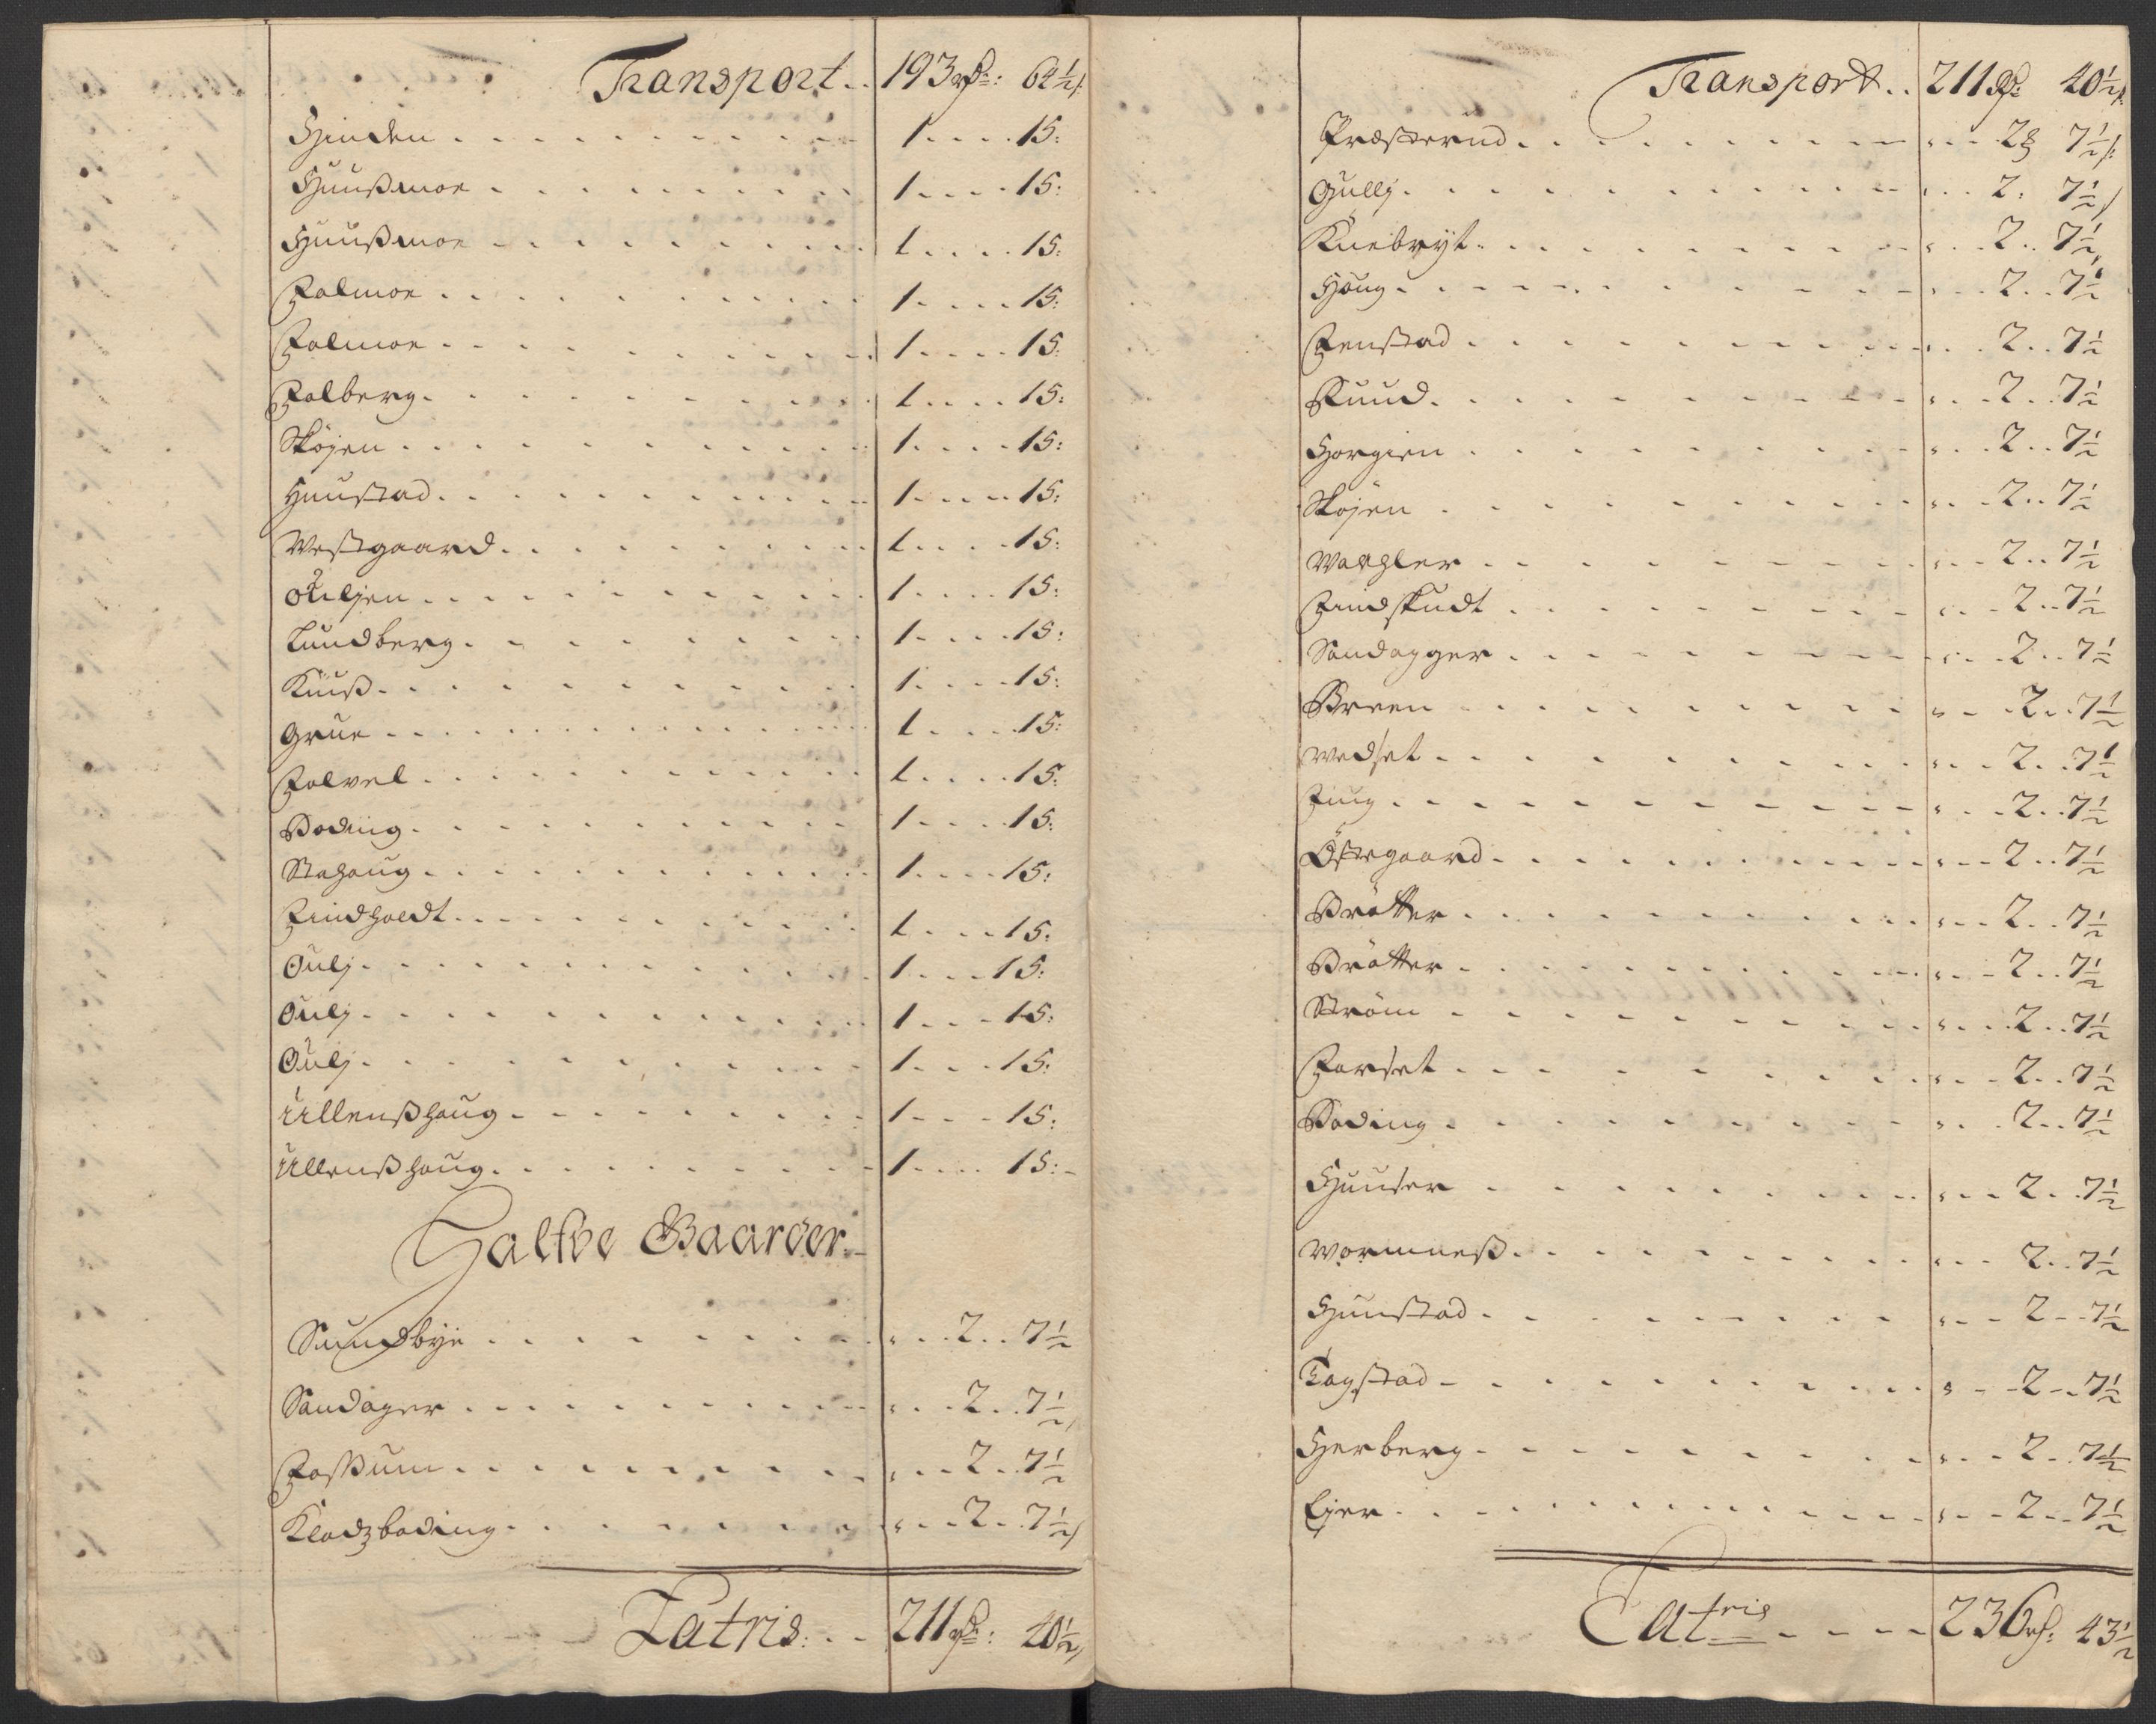 Transport .. 193 rd: 64½ s:
Hinden 1 15:
Huusmoe 1 15:
Huusmoe 1 15:
Folmoe 1 15:
Folmoe 1 15:
Folberg 1 15:
Skøyen 1 15:
Hunstad 1 15:
Westgaard 1 15:
Ouljen 1 15:
Lundberg 1 15:
Kuuß 1 15:
Grue 1 15:
Folvel 1 15:
Boding 1 15:
Stahaug 1 15:
Findholdt 1 15:
Oulj 1 15:
Oulj 1 15:
Oulj 1 15:
Ullenßhaug 1 15:
Ullenßhaug 1 15:
Halfve Gaarder
Sundbye 2 7½
Sandager 2 7½
Foßum 2 7½
Klodzboding 2 7½
Latris: 211 rd: 40½
Transport .. 211 rd: 40½
Præsterud 2 7½
Gullj 2 7½
Knebryt 2 7½
Houg 2 7½
Fenstad 2 7½
Ruud 2 7½
Horgien 2 7½
Skøyen 2 7½
Waahler 2 7½
Findskudt 2 7½
Sandagger 2 7½
Breen 2 7½
Wedset 2 7½
Fiug 2 7½
Østegaard 2 7½
Brøtter 2 7½
Brøtter 2 7½
Strøm 2 7½
Forset 2 7½
Boding 2 7½
Huuser 2 7½
Wormneß 2 7½
Hunstad 2 7½
Togstad 2 7½
Herberg 2 7½
Lier 2 7½
Latris 236 rd: 43½